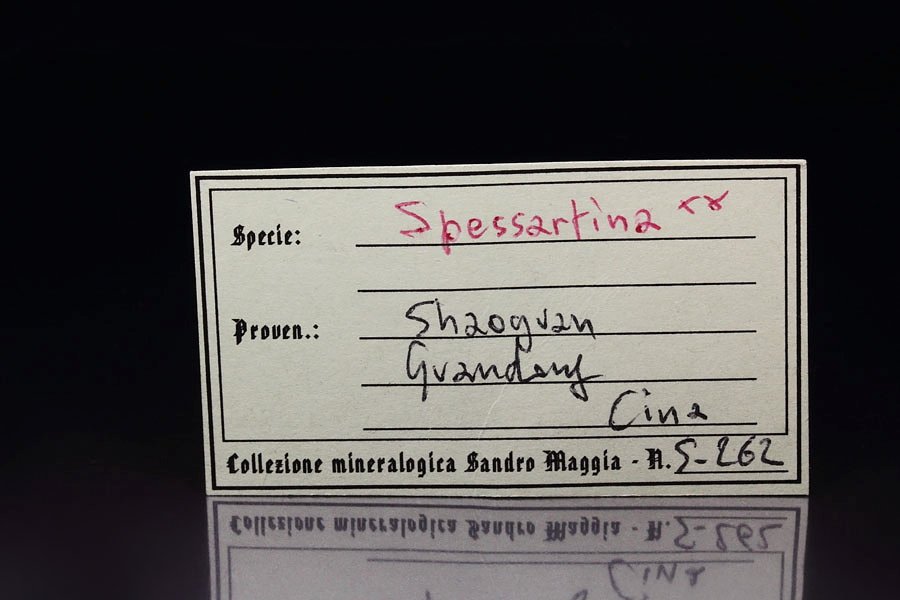 Specie: Spessartina xx
Proven.: Shaoguan
Guandong
Cina
Collezione mineralogica Sandro Maggia - N. S-262